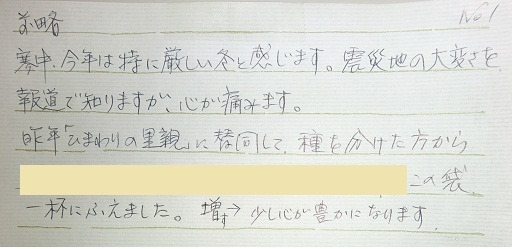 前略
No 1
寒中、今年は特に厳しい冬と感じます。震災地の大変さを
報道で知りますが、心が痛みます。
昨年「ひまわりの里親」に賛同して、種を分けた方から
この袋
一杯にふえました。増す→少し心が豊かになります